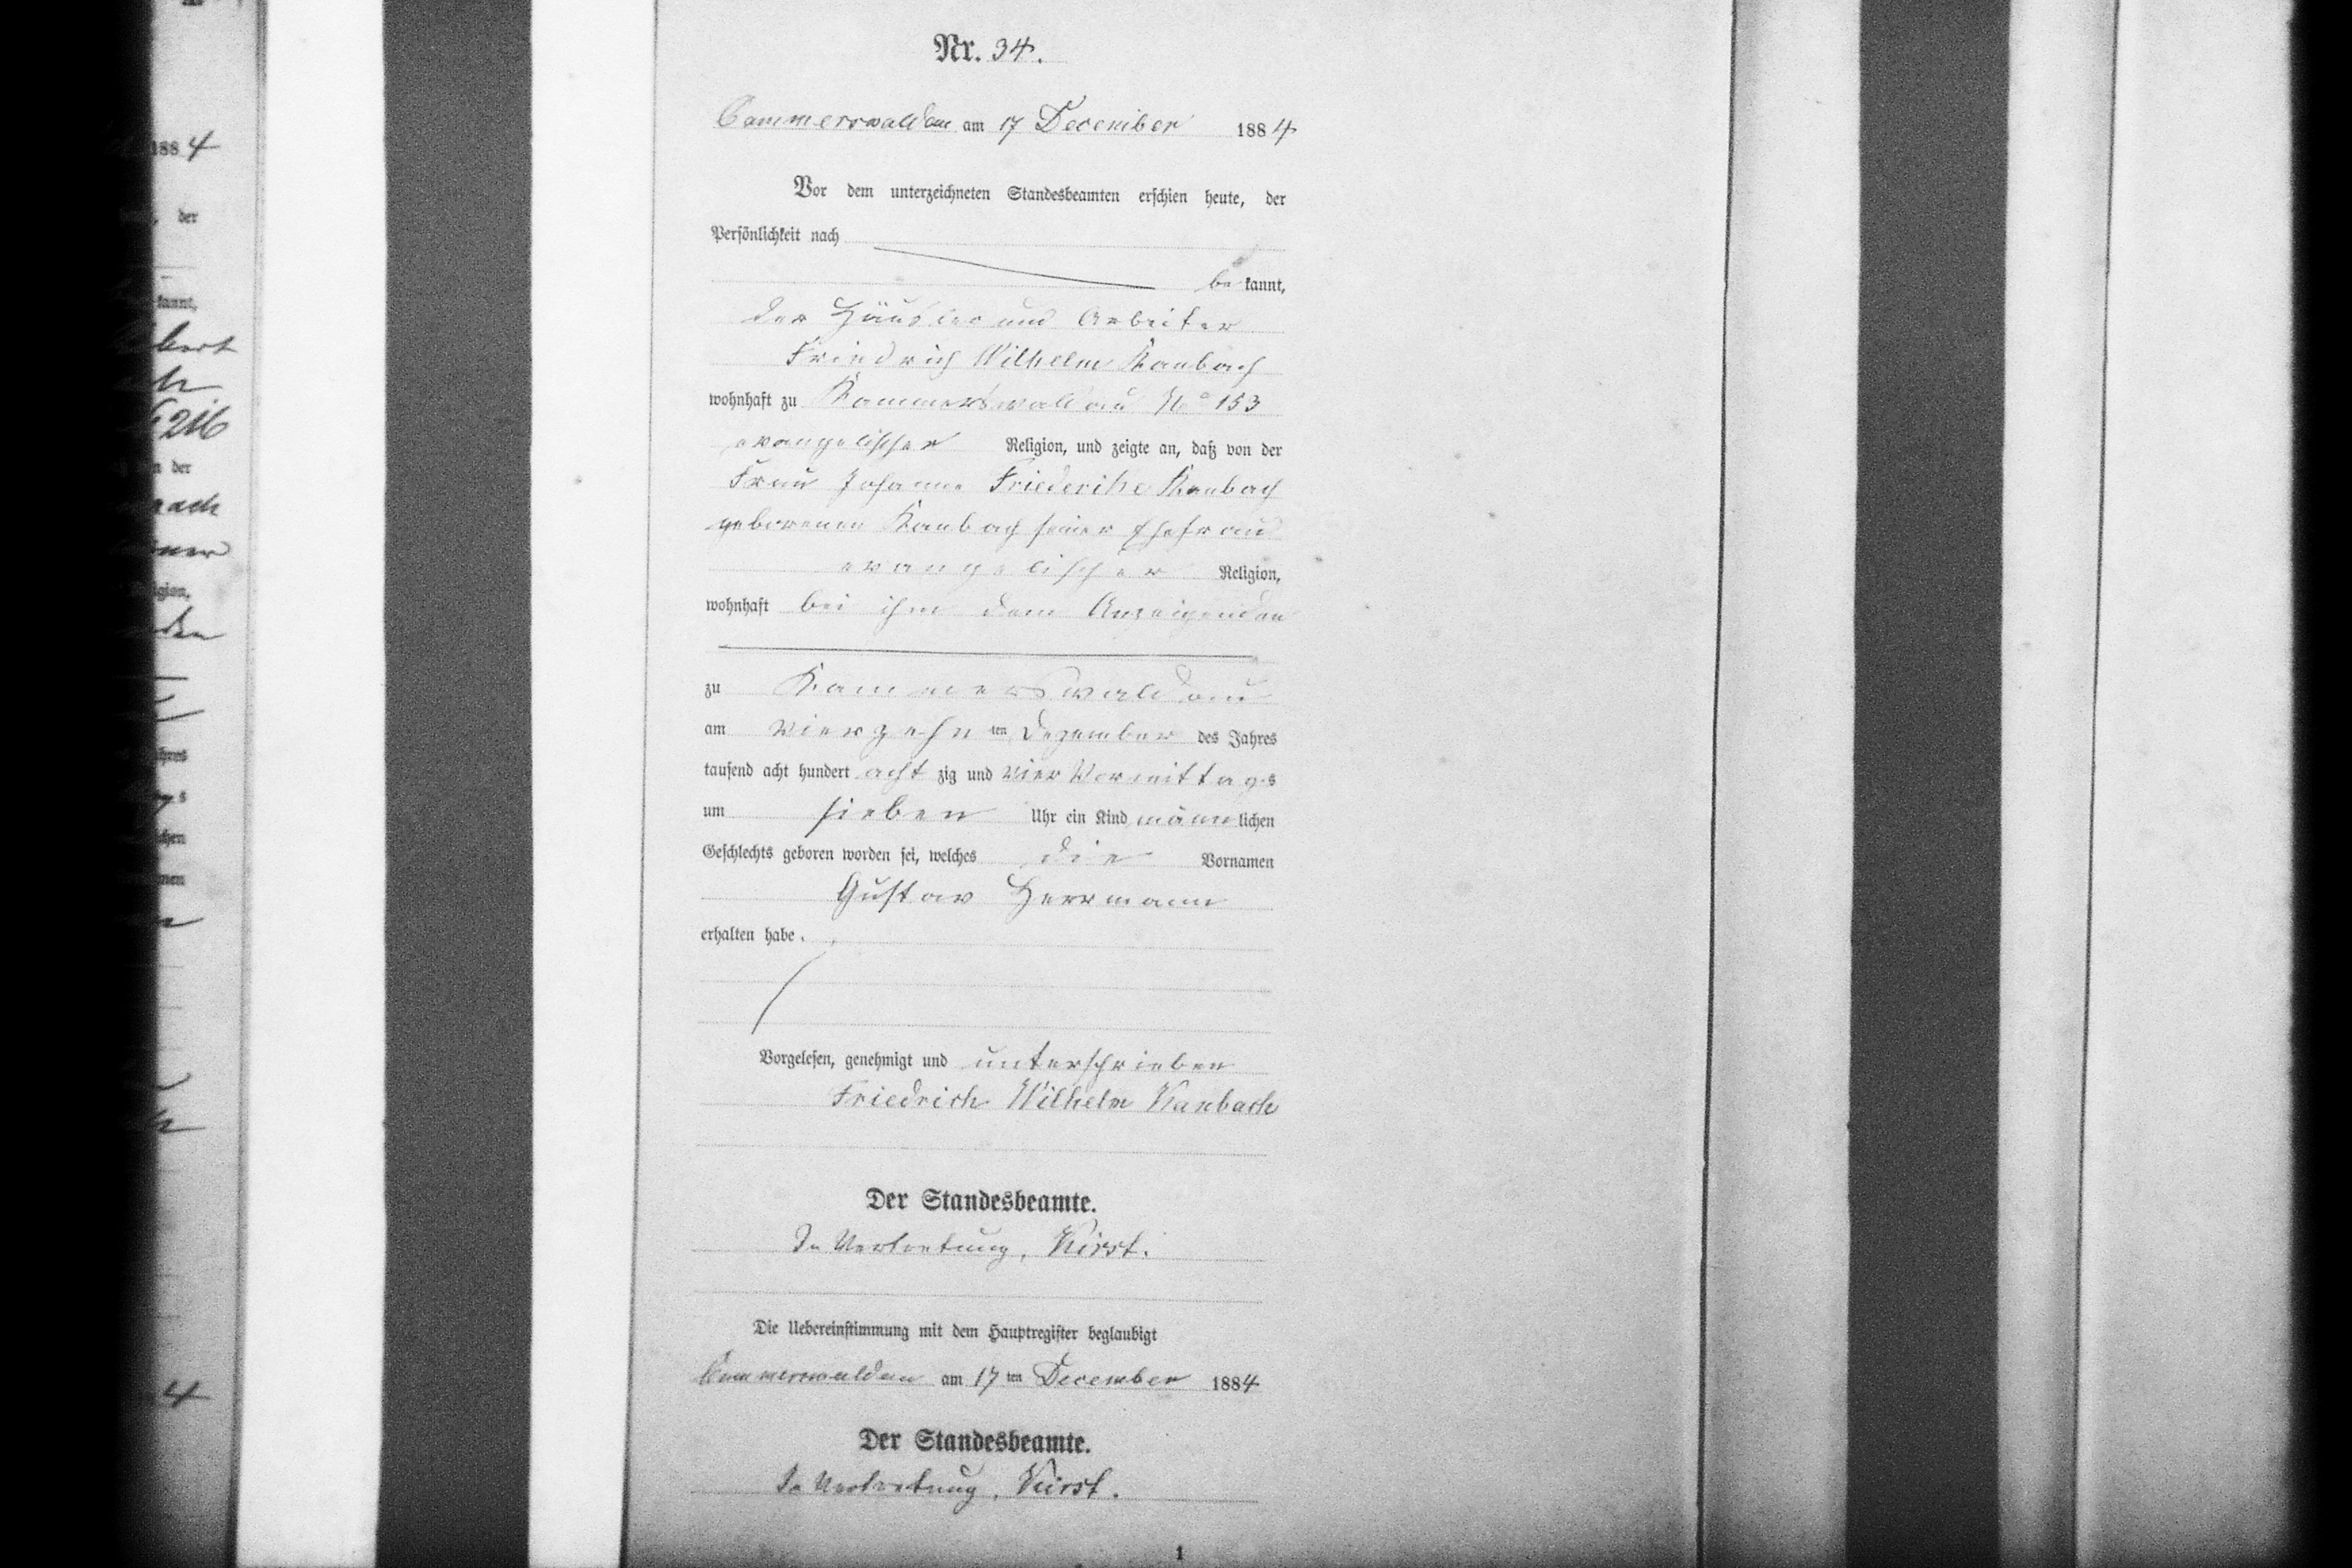 Nr. 34.
Cammerswaldau am 17 December 1884
Vor dem unterzeichneten Standesbeamten erschien heute, der
Persönlichkeit nach
be kannt,
der Häusler und Arbeiter
Friedrich Wilhelm Kanbach
wohnhaft zu Kammerswaldau No 153
evangelischer Religion, und zeigte an, daß von der
Frau Johanne Friederike Kanbach
geborenen Kanbach seiner Ehefrau
evangelischer Religion,
wohnhaft bei ihm dem Anzeigenden
zu Kammerswaldau
am vierzehn ten Dezember des Jahres
tausend acht hundert acht zig und vier Vormittags
um sieben Uhr ein Kind männlichen
Geschlechts geboren worden sei, welches die Vornamen
Gustav Herrmann
erhalten habe.
Vorgelesen, genehmigt und unterschrieben
Friedrich Wilhelm Kanbach
Der Standesbeamte.
In Vertretung, Kirst.
Die Uebereinstimmung mit dem Hauptregister beglaubigt
Cammerswaldau am 17 ten December 1884
Der Standesbeamte.
In Vertretung, Kirst.
1
1884
, der
kannt,
216
n der
ner
4